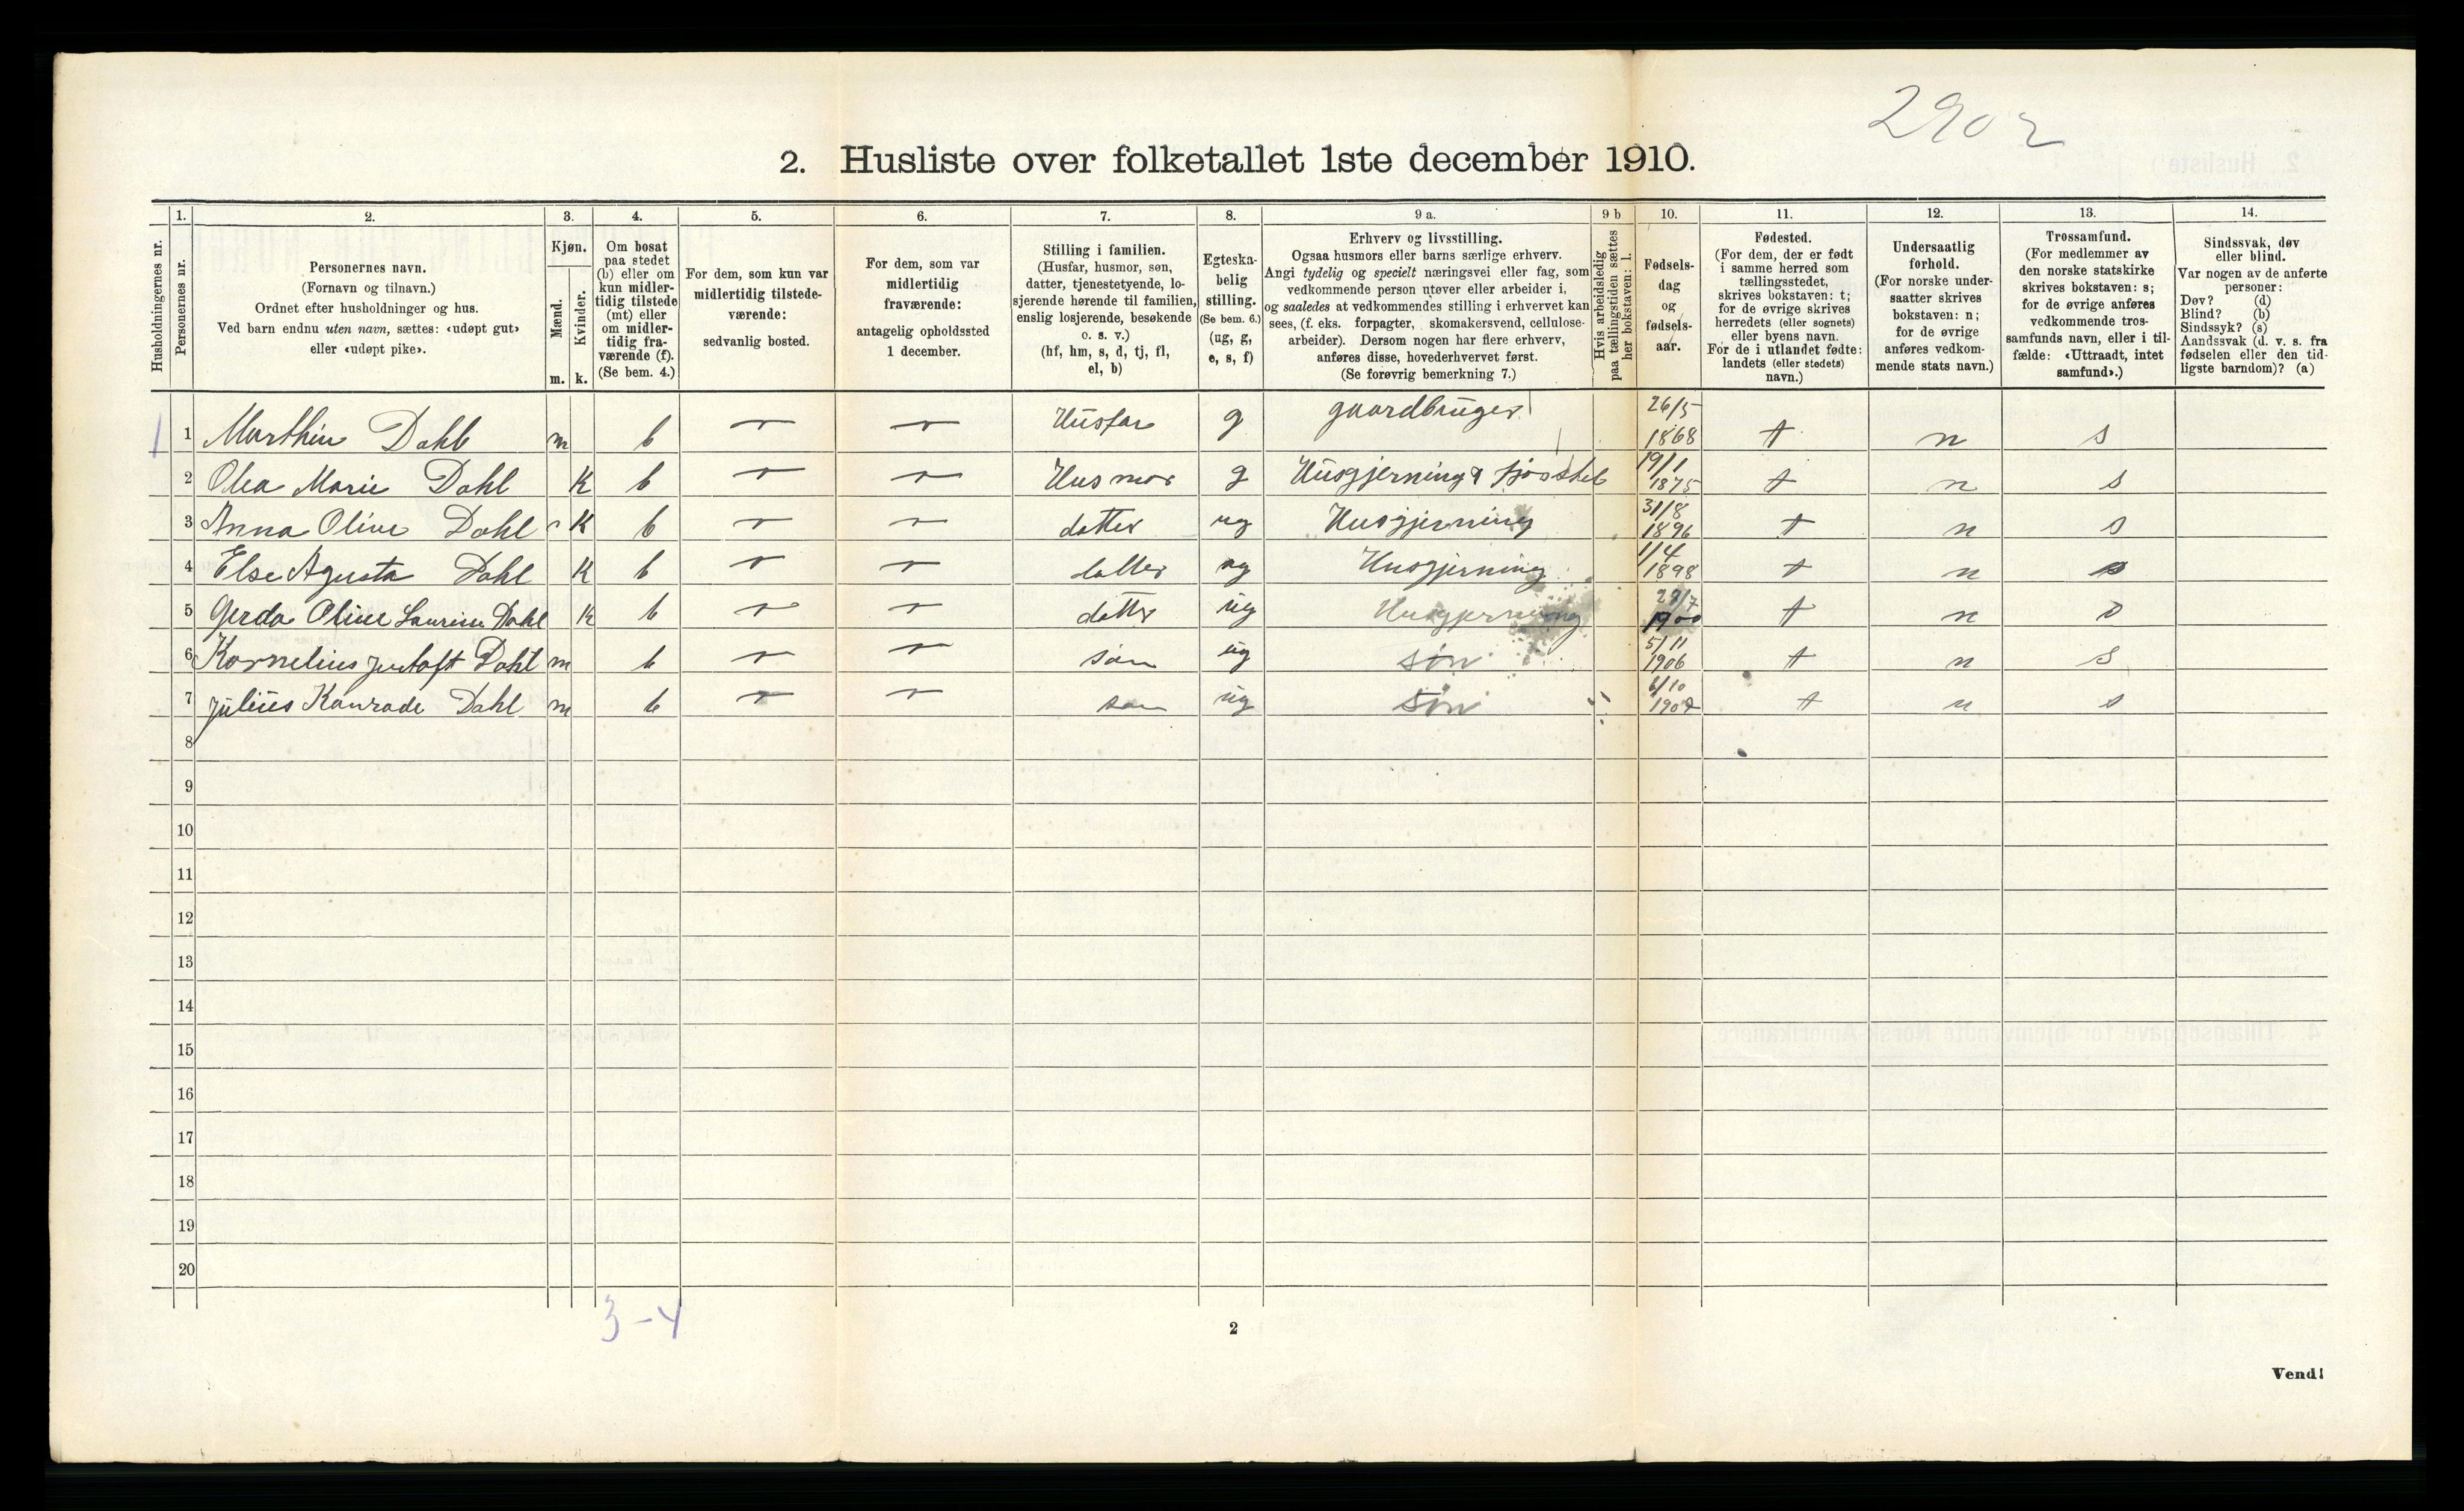 2902
2. Husliste over folketallet 1ste december 1910.
1. 2. 3. 4. 5. 6. 7. 8. 9 a. 9 b 10. 11. 12. 13. 14.
Husholdningernes nr.
Personernes nr.
Personernes navn.
(Fornavn og tilnavn.)
Ordnet efter husholdninger og hus.
Ved barn endnu uten navn, sættes: «udøpt gut»
eller «udøpt pike».
Kjøn.
Mænd.
Kvinder.
m. k.
Om bosat
paa stedet
(b) eller om
kun midler-
tidig tilstede
(mt) eller
om midler-
tidig fra-
værende (f).
(Se bem. 4.)
For dem, som kun var
midlertidig tilstede-
værende:
sedvanlig bosted.
For dem, som var
midlertidig
fraværende:
antagelig opholdssted
1 december.
Stilling i familien.
(Husfar, husmor, søn,
datter, tjenestetyende, lo-
sjerende hørende til familien,
enslig losjerende, besøkende
o. s. v.)
(hf, hm, s, d, tj, fl,
el, b)
Egteska-
belig
stilling.
(Se bem. 6.)
(ug, g,
e, s, f)
Erhverv og livsstilling.
Ogsaa husmors eller barns særlige erhverv.
Angi tydelig og specielt næringsvei eller fag, som
vedkommende person utøver eller arbeider i,
og saaledes at vedkommendes stilling i erhvervet kan
sees, (f. eks. forpagter, skomakersvend, cellulose-
arbeider). Dersom nogen har flere erhverv,
anføres disse, hovederhvervet først.
(Se forøvrig bemerkning 7.)
Hvis arbeidsledig
paa tællingstiden sættes
her bokstaven: l.
Fødsels-
dag
og
fødsels-
aar.
Fødested.
(For dem, der er født
i samme herred som
tællingsstedet,
skrives bokstaven: t;
for de øvrige skrives
herredets (eller sognets)
eller byens navn.
For de i utlandet fødte:
landets (eller stedets)
navn.)
Undersaatlig
forhold.
(For norske under-
saatter skrives
bokstaven: n;
for de øvrige
anføres vedkom-
mende stats navn.)
Trossamfund.
(For medlemmer av
den norske statskirke
skrives bokstaven: s;
for de øvrige anføres
vedkommende tros-
samfunds navn, eller i til-
fælde: «Uttraadt, intet
samfund».)
Sindssvak, døv
eller blind.
Var nogen av de anførte
personer:
Døv? (d)
Blind? (b)
Sindssyk? (s)
Aandssvak (d. v. s. fra
fødselen eller den tid-
ligste barndom)? (a)
1 1 Marthin Dahl m b Husfar g gaardbruger 26/5 1868 t n s
2 Olea Marie Dahl K b Husmor g Husgjerning 19/1 1875 t n s
3 Anna Oline Dahl K b datter ug Husgjerning 31/8 1896 t n s
4 Else Agusta Dahl K b datter ug Husgjerning 1/4 1898 t n s
5 Gerda Oline Laurine Dahl K b datter ug Husgjerning 1900 t n s
6 Kornelius Dahl m b søn ug søn 5/11 1906 t n s
7 Julius Konrade Dahl m b søn ug søn 6/10 t n s
8
9
10
11
12
13
14
15
16
17
18
19
20
3-4
2
Vend!